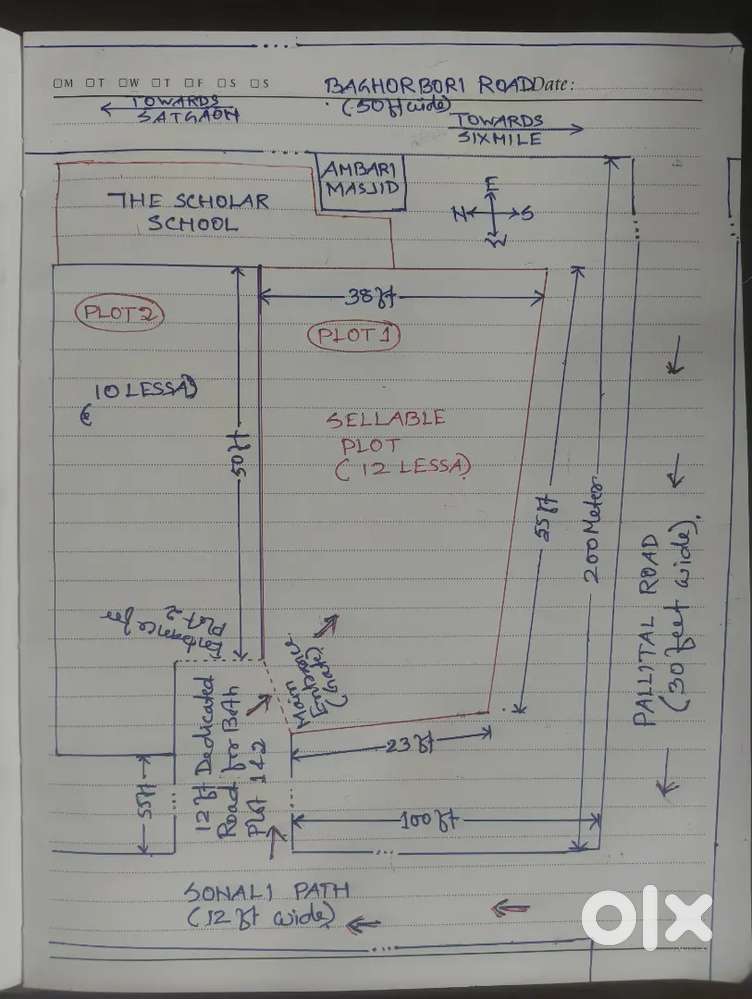 □M □T □W □T □F □S □S
BAGHORBORI ROAD Date:
(50ft wide)
TOWARDS
SATGAON
TOWARDS
SIXMILE
AMBARI
MASJID
THE SCHOLAR
SCHOOL
E
N S
W
38ft
PLOT 2
PLOT 1
(10 LESSA)
SELLABLE
PLOT
(12 LESSA)
50ft
55ft
200 Meter
PALLITAL ROAD
(30 feet wide).
Entrance for
Plot 2
Main
Entrance
(Gate)
12ft Dedicated
Road for Both
Plot 1 & 2
23ft
55ft
100ft
SONALI PATH
(12ft wide)
olx